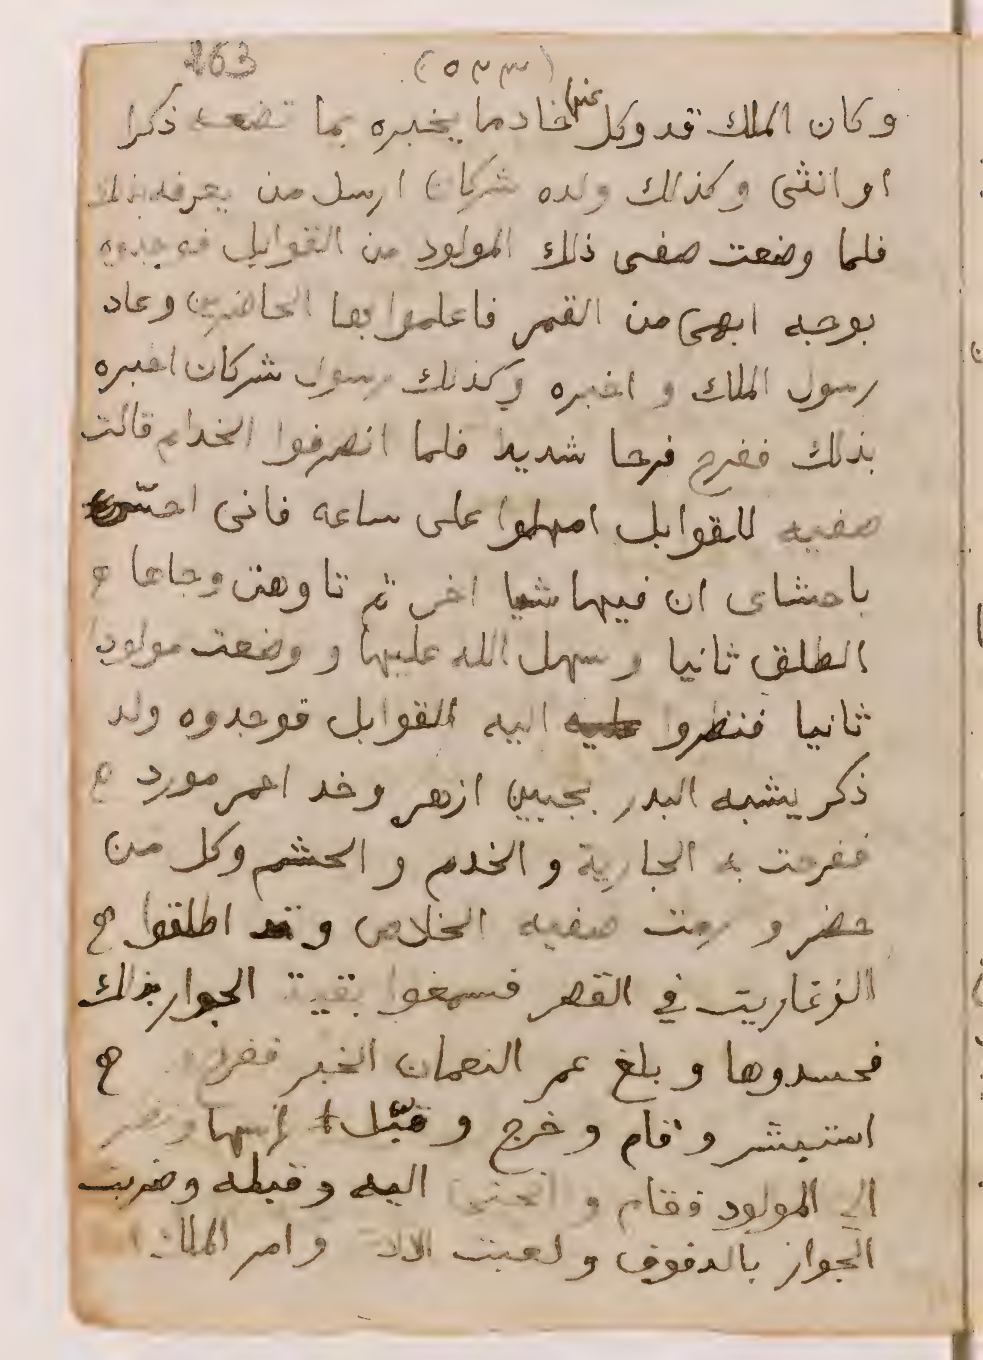 263 (٥٣٣)
وكان الملك قد وكل عنها خادما يخبره بما تضعه ذكرا
او انثى وكذلك ولده شركان ارسل من يعرفه بذلك
فلما وضعت صفى ذلك المولود من القوابل فوجدوه
بوجه ابهى من القمر فاعلموا بها الحاضرين وعاد
رسول الملك و اخبره وكذلك رسول شركان اخبره
بذلك ففرح فرحا شديدا فلما انصرفوا الخدام قالت
صفيه للقوابل امهلوا على ساعه فانى احس
باحشاى ان فيها شيا اخر ثم تاوهت وجاها
الطلق ثانيا وسهل الله عليها و وضعت مولودا
ثانيا فنظروا اليه القوابل فوجدوه ولد
ذكر يشبه البدر بجبين ازهر وخد احمر مورد
ففرحت به الجارية و الخدم و الحشم وكل من
حضر و رمت صفيه الخلاص وقد اطلقوا
الزغاريت في القصر فسمعوا بقية الجوار بذلك
فحسدوها و بلغ عمر النعمان الخبر ففرح
استبشر وقام وخرج وقبّل راسها ونظر
الي المولود فقام و انحنى اليه وقبله وضربت
الجواز بالدفوف ولعبت الالات وامر الملك